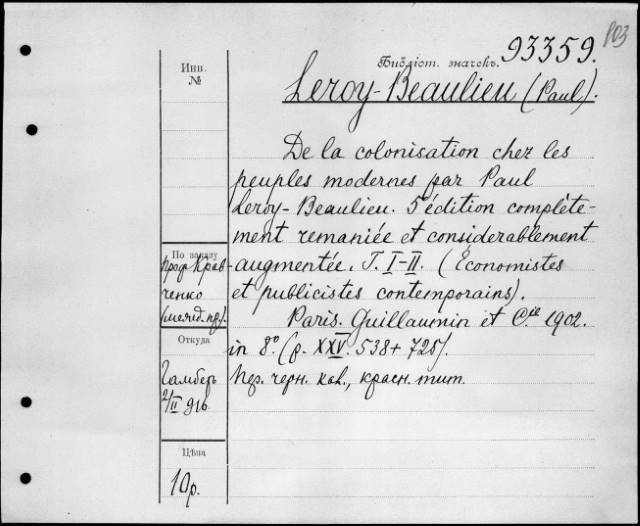 103
Библіот. значекъ. 93359.
Инв.
№
Leroy-Beaulieu (Paul).
De la colonisation chez les
peuples modernes par Paul
Leroy-Beaulieu. 5 édition complète-
ment remaniée et considerablement
augmentée. T. I-II. (Économistes
et publicistes contemporains).
Paris. Guillaumin et Cie 1902.
in 8º. (p. XXV. 538+725).
Пер. черн. кал., красн. тит.
По заказу
проф. Крав-
ченко
Откуда
Гамберъ
2/II 916
Цѣна
10р.